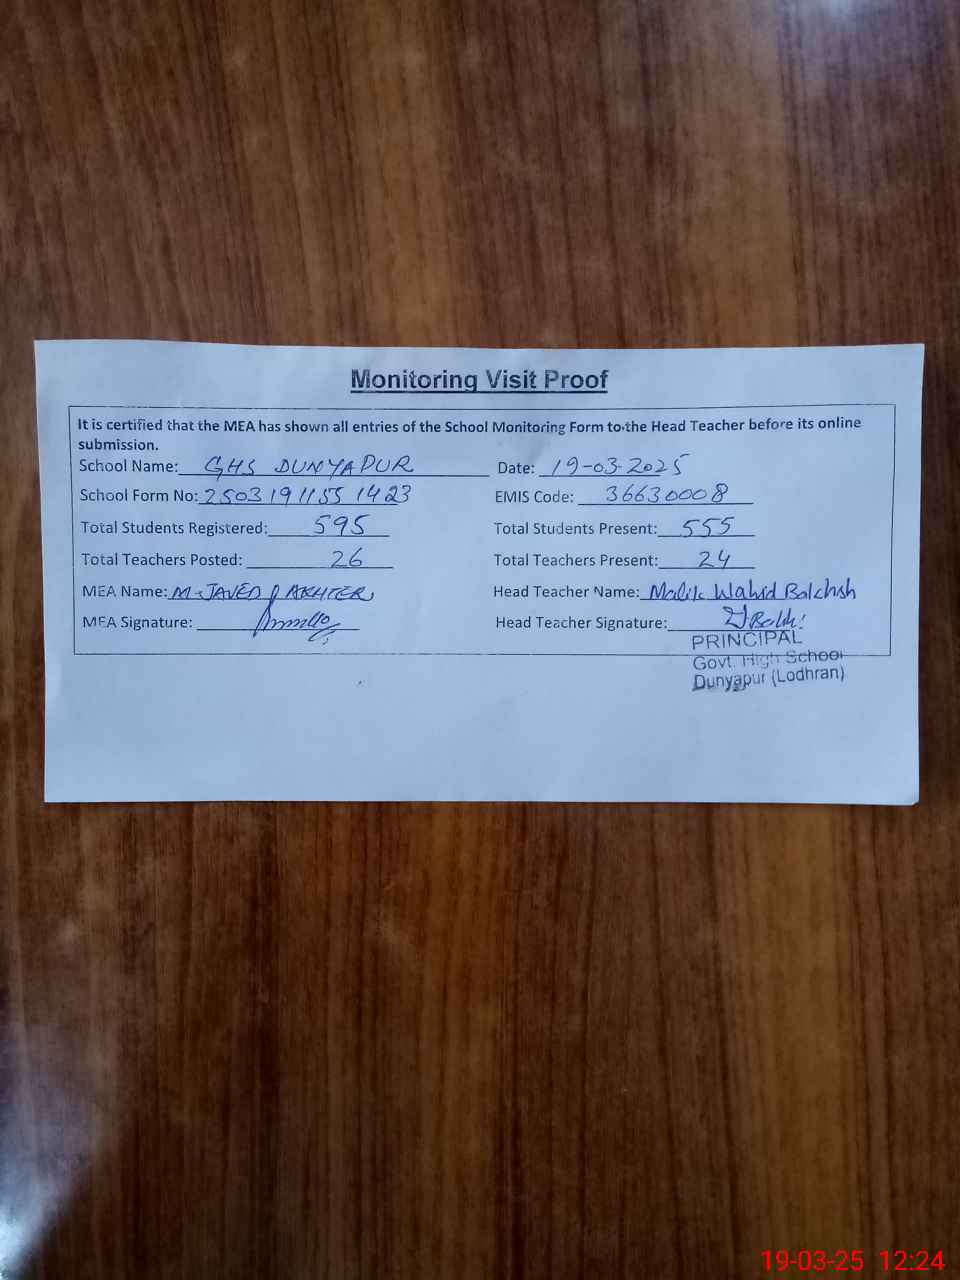 Monitoring Visit Proof
It is certified that the MEA has shown all entries of the School Monitoring Form to the Head Teacher before its online
submission.
School Name: GHS DUNYAPUR Date: 19-03-2025
School Form No: 2503191155 1423 EMIS Code: 36630008
Total Students Registered: 595 Total Students Present: 555
Total Teachers Posted: 26 Total Teachers Present: 24
MEA Name: M. JAVED AKHTER Head Teacher Name: Malik Wahid Bakhsh
MEA Signature: Head Teacher Signature:
PRINCIPAL
Govt. High School
Dunyapur (Lodhran)
19-03-25 12:24